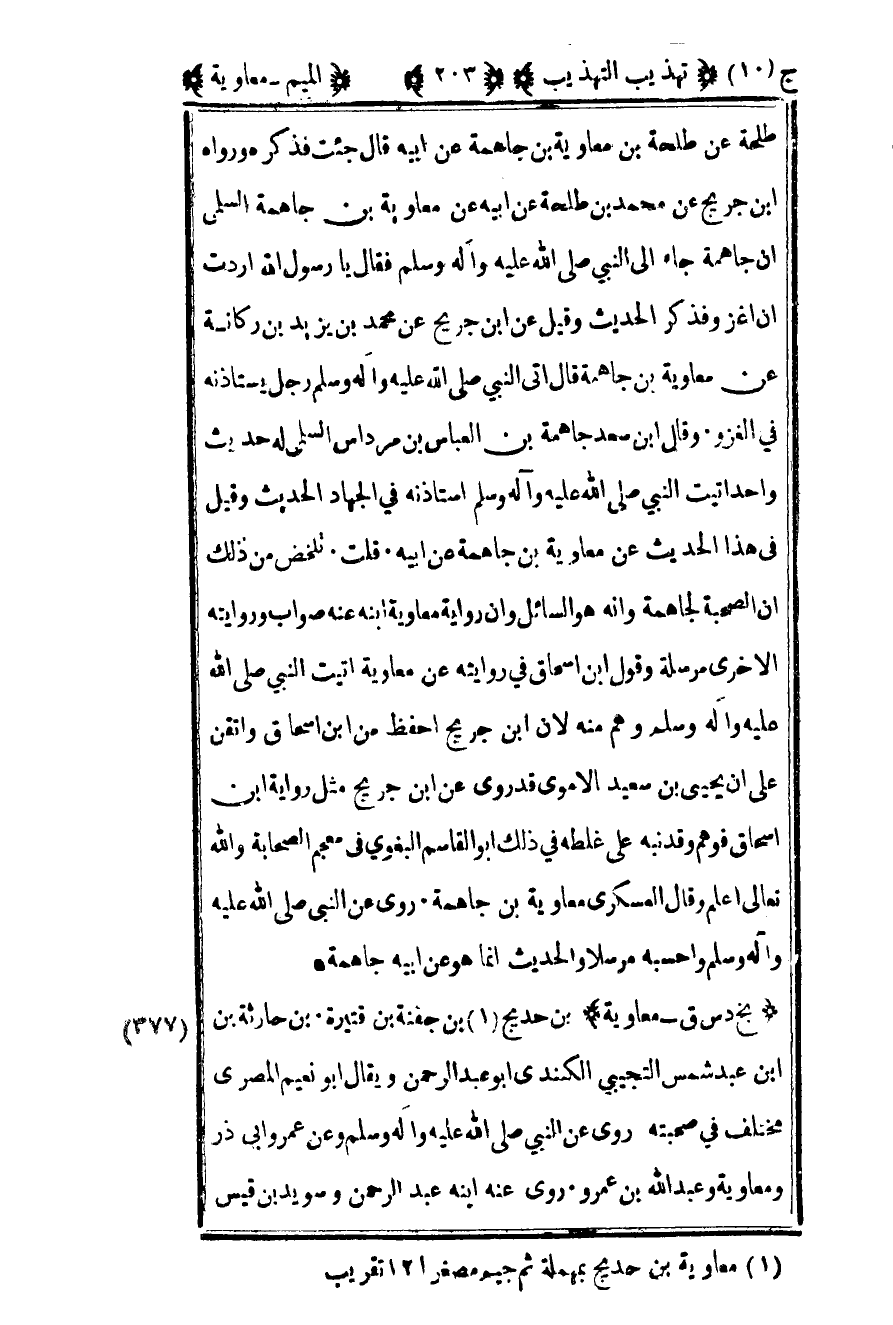 ج (١٠) ﴿ تهذيب التهذيب ﴾ ﴿ ٢٠٣ ﴾ ﴿ الميم ـ معاوية ﴾
طلحة عن طلحة بن معاوية بن جاهمة عن ابيه قال جئت فذكره ورواه
ابن جريج عن محمد بن طلحة عن ابيه عن معاوية بن جاهمة السلمى
ان جاهمة جاء الى النبي صلى الله عليه وآله وسلم فقال يا رسول الله اردت
ان اغزو فذكر الحديث وقيل عن ابن جريج عن محمد بن يزيد بن ركانة
عن معاوية بن جاهمة قال اتى النبي صلى الله عليه وآله وسلم رجل يستاذنه
في الغزو ٠ وقال ابن سعد جاهمة بن العباس بن مرداس السلمى له حديث
واحد اتيت النبي صلى الله عليه وآله وسلم استاذنه في الجهاد الحديث وقيل
فى هذا الحديث عن معاوية بن جاهمة عن ابيه ٠ قلت ٠ تلخض من ذلك
ان الصحبة لجاهمة وانه هو السائل وان رواية معاوية ابنه عنه صواب وروايته
الاخرى مرسلة وقول ابن اسحاق في روايته عن معاوية اتيت النبي صلى الله
عليه وآله وسلم وهم منه لان ابن جريج احفظ من ابن اسحاق واتقن
على ان يحيى بن سعيد الاموى قد روى عن ابن جريج مثل رواية ابن
اسحاق فوهم وقد نبه على غلطه في ذلك ابو القاسم البغوي فى معجم الصحابة والله
تعالى اعلم وقال العسكرى معاوية بن جاهمة ٠ روى عن النبى صلى الله عليه
وآله وسلم واحسبه مرسلا والحديث انما هو عن ابيه جاهمة •
﴿ بخ د س ق ـ معاوية ﴾ بن حديج (١) بن جفنة بن قتيرة ٠ بن حارثة بن (٣٧٧)
ابن عبد شمس التجيبي الكندى ابو عبد الرحمن ويقال ابو نعيم المصرى
مختلف في صحبته روى عن النبي صلى الله عليه وآله وسلم وعن عمر وابي ذر
ومعاوية وعبد الله بن عمرو ٠ روى عنه ابنه عبد الرحمن وسويد بن قيس
(١) معاوية بن حديج بمهملة ثم جيم مصغر ١٢١ تقريب